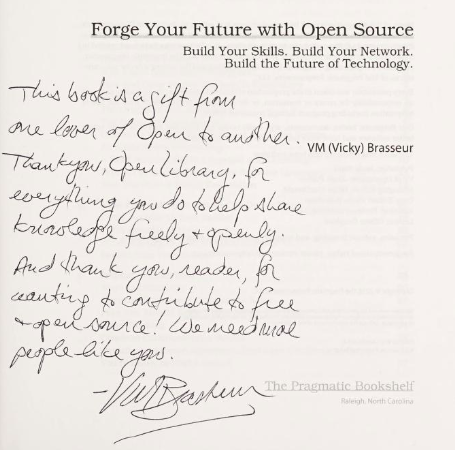 Forge Your Future with Open Source
Build Your Skills. Build Your Network.
Build the Future of Technology.
This book is a gift from
one lover of Open to another.
VM (Vicky) Brasseur
Thank you, Open Library, for
everything you do to help share
knowledge freely + openly.
And thank you, reader, for
wanting to contribute to free
+ open source! We need more
people like you.
- VM Brasseur
The Pragmatic Bookshelf
Raleigh, North Carolina